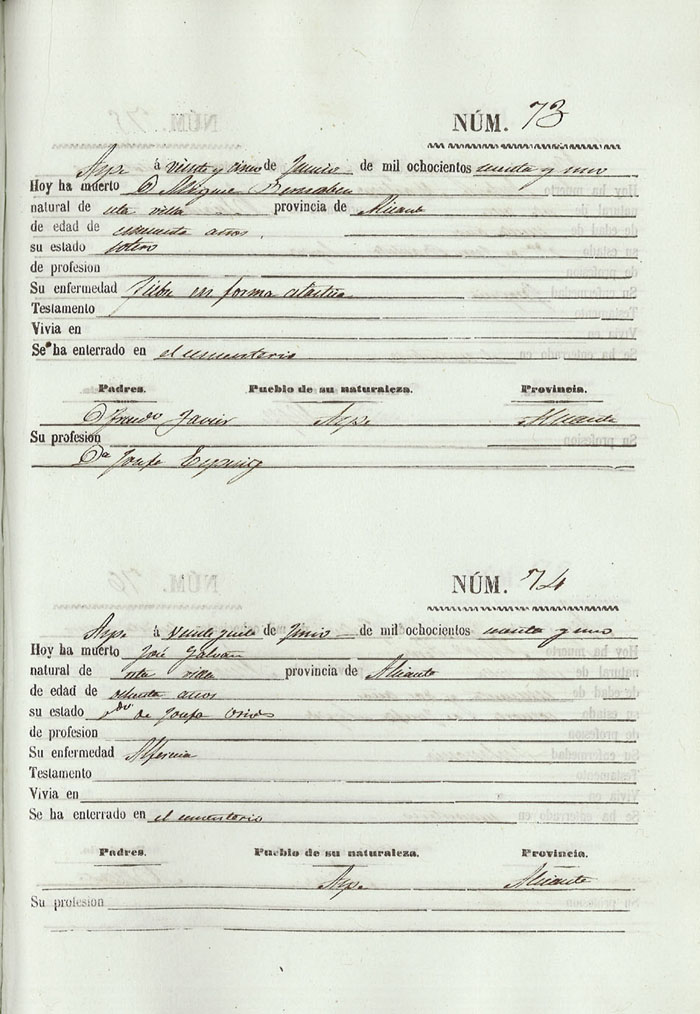 NÚM. 73
Aspe á veinte y cinco de Junio de mil ochocientos sesenta y uno
Hoy ha muerto D. Miguel Bernabeu
natural de esta villa provincia de Alicante
de edad de cincuenta años
su estado soltero
de profesion
Su enfermedad fiebre en forma atactica
Testamento
Vivia en
Se ha enterrado en el cementerio
Padres. Pueblo de su naturaleza. Provincia.
Javier Aspe Alicante
Su profesion
Da Josefa
NÚM. 74
Aspe á veinte y siete de Junio de mil ochocientos sesenta y uno
Hoy ha muerto José Galvañ
natural de esta villa provincia de Alicante
de edad de ochenta años
su estado vdo de Josefa
de profesion
Su enfermedad Alferecia
Testamento
Vivia en
Se ha enterrado en el cementerio
Padres. Pueblo de su naturaleza. Provincia.
Aspe Alicante
Su profesion